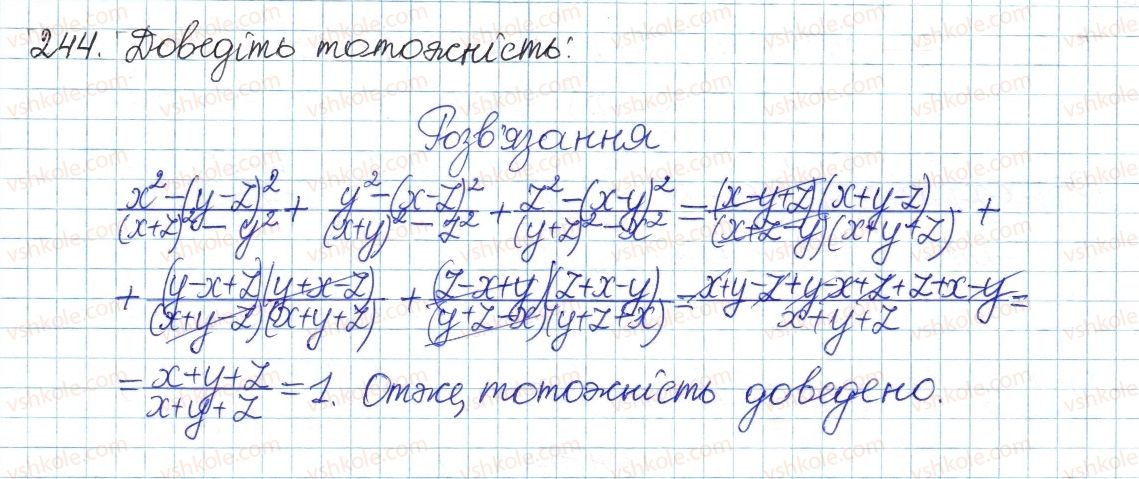 244. Доведіть тотожність:
Розв'язання
(x²-(y-z)²)/((x+z)²-y²) + (y²-(x-z)²)/((x+y)²-z²) + (z²-(x-y)²)/((y+z)²-x²) = ((x-y+z)(x+y-z))/((x+z-y)(x+y+z)) +
+ ((y-x+z)(y+x-z))/((x+y-z)(x+y+z)) + ((z-x+y)(z+x-y))/((y+z-x)(y+z+x)) = (x+y-z+y-x+z+z+x-y)/(x+y+z) =
= (x+y+z)/(x+y+z) = 1. Отже, тотожність доведено.